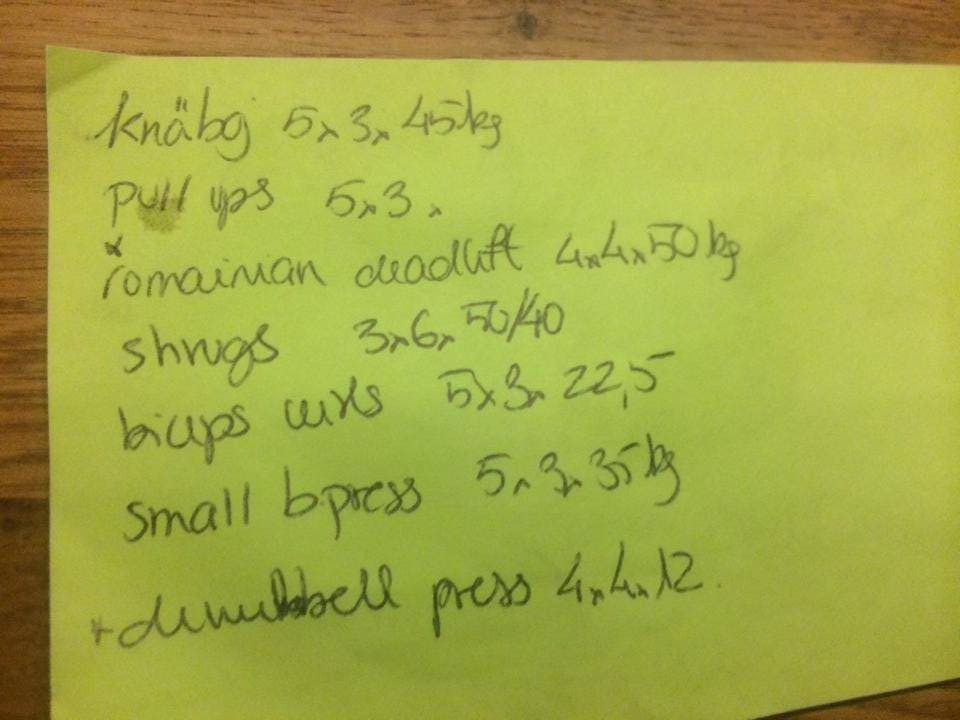 knäbøj 5x3x45kg
pull ups 5x3x
romainian deadlift 4x4x50kg
shrugs 3x6x50/40
biceps curls 5x3x22,5
small b.press 5x3x35kg
+dumbbell press 4x4x12.